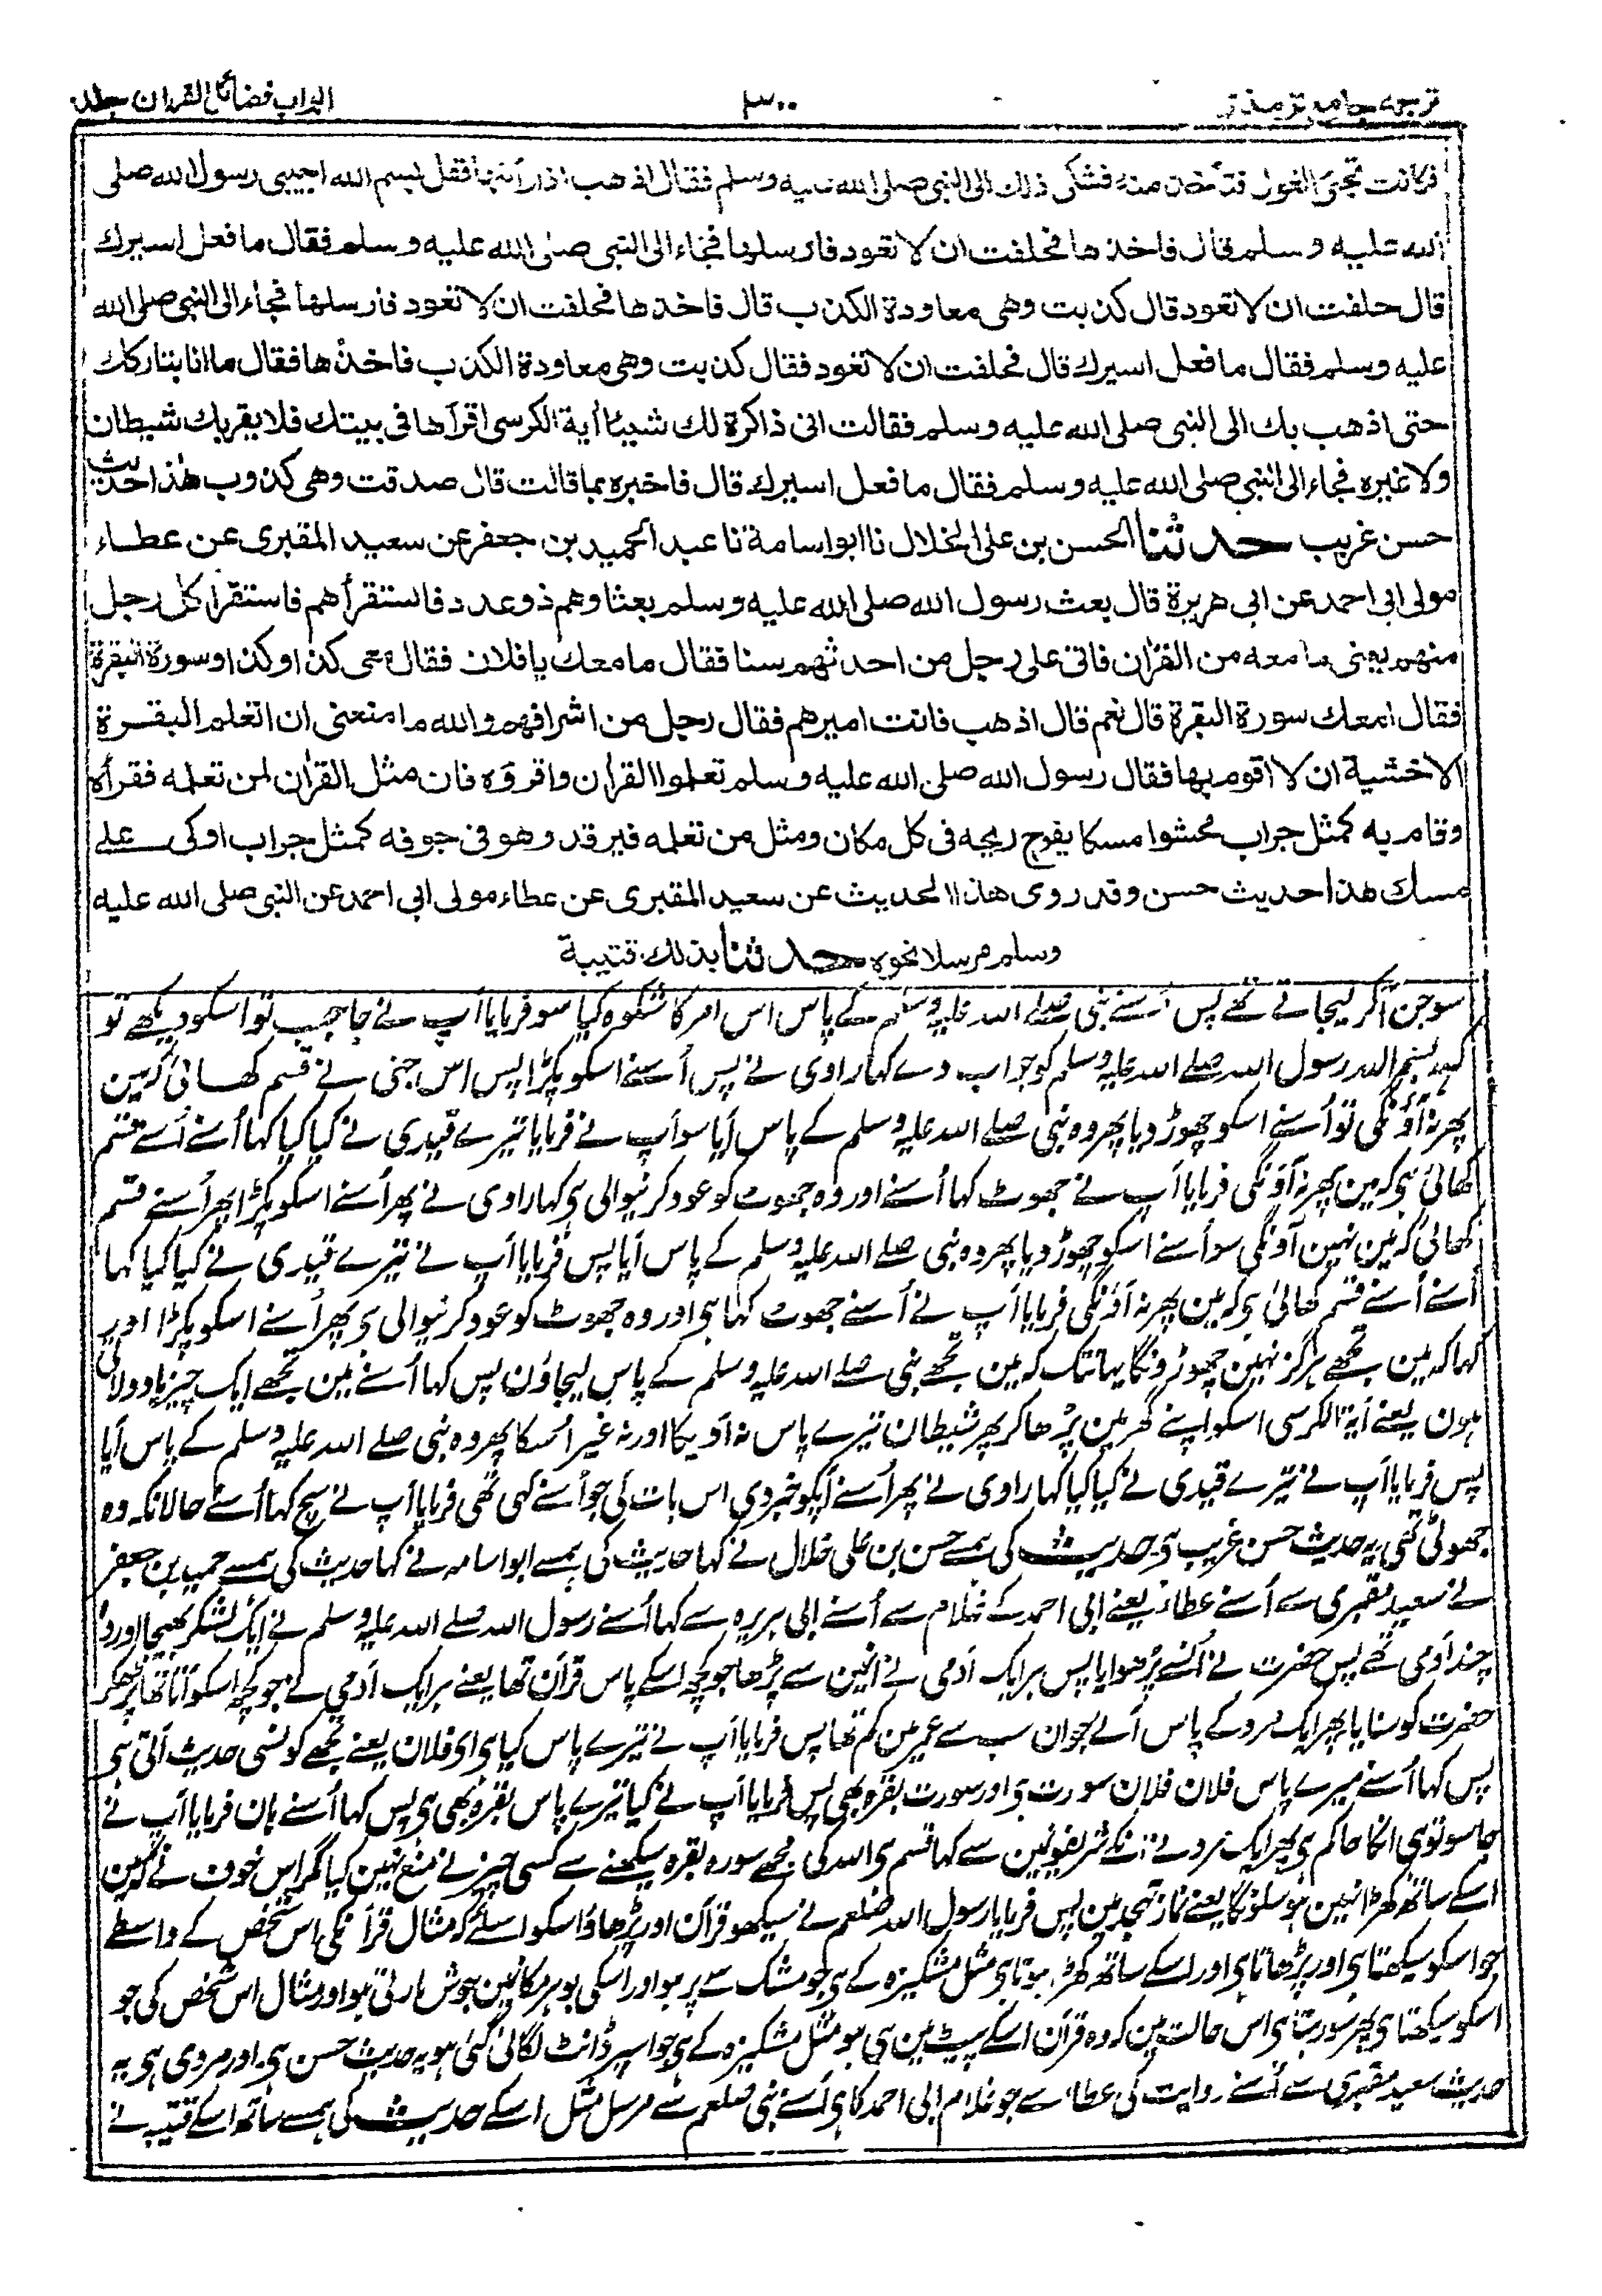 ترجمہ جامع ترمذی
۳۰۰
ابواب فضائل القران جلد
فكانت تجئ الغول فتأخذ منه فشكى ذلك الى النبي صلى الله عليه وسلم فقال اذهب اذا رأيتها فقل بسم الله اجيبي رسول الله صلى
الله عليه وسلم قال فاخذها فحلفت ان لا تعود فارسلها فجاء الى النبي صلى الله عليه وسلم فقال ما فعل اسيرك
قال حلفت ان لا تعود قال كذبت وهى معاودة الكذب قال فاخذها فحلفت ان لا تعود فارسلها فجاء الى النبي صلى الله
عليه وسلم فقال ما فعل اسيرك قال فحلفت ان لا تعود فقال كذبت وهى معاودة الكذب فاخذها فقال ما انا بتاركك
حتى اذهب بك الى النبي صلى الله عليه وسلم فقالت انى ذاكرة لك شيئا أية الكرسى اقرأها فى بيتك فلا يقربك شيطان
ولا غيره فجاء الى النبي صلى الله عليه وسلم فقال ما فعل اسيرك قال فاخبره بما قالت قال صدقت وهى كذوب هذا حديث
حسن غريب حدثنا الحسن بن على الخلال نا ابو اسامة نا عبد الحميد بن جعفر عن سعيد المقبرى عن عطاء
مولى ابى احمد عن ابى هريرة قال بعث رسول الله صلى الله عليه وسلم بعثا وهم ذو عدد فاستقرأهم فاستقرا كل رجل
منهم يعنى ما معه من القران فاتى على رجل من احدثهم سنا فقال ما معك يا فلان فقال معى كذا وكذا وسورة البقرة
فقال امعك سورة البقرة قال نعم قال اذهب فانت اميرهم فقال رجل من اشرافهم والله ما منعنى ان اتعلم البقرة
الا خشية ان لا اقوم بها فقال رسول الله صلى الله عليه وسلم تعلموا القران واقروه فان مثل القران لمن تعلمه فقرأه
وقام به كمثل جراب محشوا مسكا يفوح ريحه فى كل مكان ومثل من تعلمه فيرقد وهو فى جوفه كمثل جراب اوكى على
مسك هذا حديث حسن وقد روى هذا الحديث عن سعيد المقبرى عن عطاء مولى ابى احمد عن النبي صلى الله عليه
وسلم مرسلا نحوه حدثنا بذلك قتيبة
سو جن آکر لیجاتے تھے پس اسنے نبی صلے اللہ علیہ وسلم کے پاس اس امر کا شکوہ کیا سو فرمایا آپ نے جا جب تو اسکو دیکھے تو
کہہ بسم اللہ رسول اللہ صلے اللہ علیہ وسلم کو جواب دے کہا راوی نے پس اُسنے اسکو پکڑا پس اس جنی نے قسم کھائی کہ مین
پھر نہ آؤنگی تو اُسنے اسکو چھوڑ دیا پھر وہ نبی صلے اللہ علیہ وسلم کے پاس آیا سو آپ نے فرمایا تیرے قیدی نے کیا کیا کہا اُسنے اُسنے قسم
کھائی ہی کہ مین پھر نہ آؤنگی فرمایا آپ نے جھوٹ کہا اُسنے اور وہ جھوٹ کو عود کرنیوالی ہی کہا راوی نے پھر اُسنے اسکو پکڑا پھر اُسنے قسم
کھائی کہ مین نہین آونگی سو اُسنے اسکو چھوڑ دیا پھر وہ نبی صلے اللہ علیہ وسلم کے پاس آیا پس فرمایا آپ نے تیرے قیدی نے کیا کیا کہا
اُسنے اُسنے قسم کھائی ہی کہ مین پھر نہ آؤنگی فرمایا آپ نے اُسنے جھوٹ کہا ہی اور وہ جھوٹ کو عود کرنیوالی ہی پھر اُسنے اسکو پکڑا اور
کہا کہ مین تجھے ہرگز نہین چھوڑونگا یہانتک کہ مین تجھے نبی صلے اللہ علیہ وسلم کے پاس لیجاؤن پس کہا اُسنے مین تجھے ایک چیز یاد دلاتی
ہون یعنے آیۃ الکرسی اسکو اپنے گھر مین پڑھا کر پھر شیطان تیرے پاس نہ آویگا اور نہ غیر اُسکا پھر وہ نبی صلے اللہ علیہ وسلم کے پاس آیا
پس فرمایا آپ نے تیرے قیدی نے کیا کیا کہا راوی نے پھر اُسنے آپکو خبر دی اس بات کی جو اُسنے کہی تھی فرمایا آپ نے سچ کہا اُسنے حالانکہ وہ
جھوٹی تھی یہ حدیث حسن غریب ہی حدیث کی ہمسے حسن بن علی خلال نے کہا حدیث کی ہمسے ابو اسامہ نے کہا حدیث کی ہمسے حمید بن جعفر
نے سعید مقبری سے اُسنے عطاء یعنے ابی احمد کے غلام سے اُسنے ابی ہریرہ سے کہا اُسنے رسول اللہ صلے اللہ علیہ وسلم نے ایک لشکر بھیجا اور وہ
چند آدمی تھے پس حضرت نے اُنسے پڑھوایا پس ہر ایک آدمی نے انمین سے پڑھا جو کچھ اسکے پاس قرآن تھا یعنے ہر ایک آدمی نے جو کچھ اسکو آتا تھا پڑھکر
حضرت کو سنایا پھر ایک مرد کے پاس آئے جو ان سب سے عمر مین کم تھا پس فرمایا آپ نے تیرے پاس کیا ہی ای فلان یعنے تجھے کونسی حدیث آتی ہی
پس کہا اُسنے میرے پاس فلان فلان سورت ہی اور سورت بقرہ بھی پس فرمایا آپ نے کیا تیرے پاس بقرہ بھی ہی پس کہا اُسنے ہان فرمایا آپ نے
جا سو تو ہی انکا حاکم ہی پھر ایک مرد نے انکے شریفون مین سے کہا قسم ہی اللہ کی مجھے سورہ بقرہ سیکھنے سے کسی چیز نے منع نہین کیا مگر اس خوف نے کہ مین
اسکے ساتھ کھڑا نہین ہو سکونگا یعنے نماز تہجد مین پس فرمایا رسول اللہ صلعم نے سیکھو قرآن اور پڑھاؤ اسکو اسلئے کہ مثال قرآنکی اس شخص کے واسطے
جو اسکو سیکھتا ہی اور پڑھاتا ہی اور اسکے ساتھ کھڑا ہوتا ہی مثل مشکیزہ کے ہی جو مشک سے پر ہو اور اسکی بو ہر مکانمین جوش مارتی ہو اور مثال اس شخص کی جو
اسکو سیکھتا ہی پھر سورہتا ہی اس حالت مین کہ وہ قرآن اسکے پیٹ مین ہی ہو مثل مشکیزہ کے ہی جو اسپر ڈانٹ لگائی گئی ہو یہ حدیث حسن ہی اور مروی ہی یہ
حدیث سعید مقبری سے اُسنے روایت کی عطاء سے جو غلام ابی احمد کا ہی اُسنے نبی صلعم سے مرسل مثل اسکے حدیث کی ہمسے ساتھ اسکے قتیبہ نے